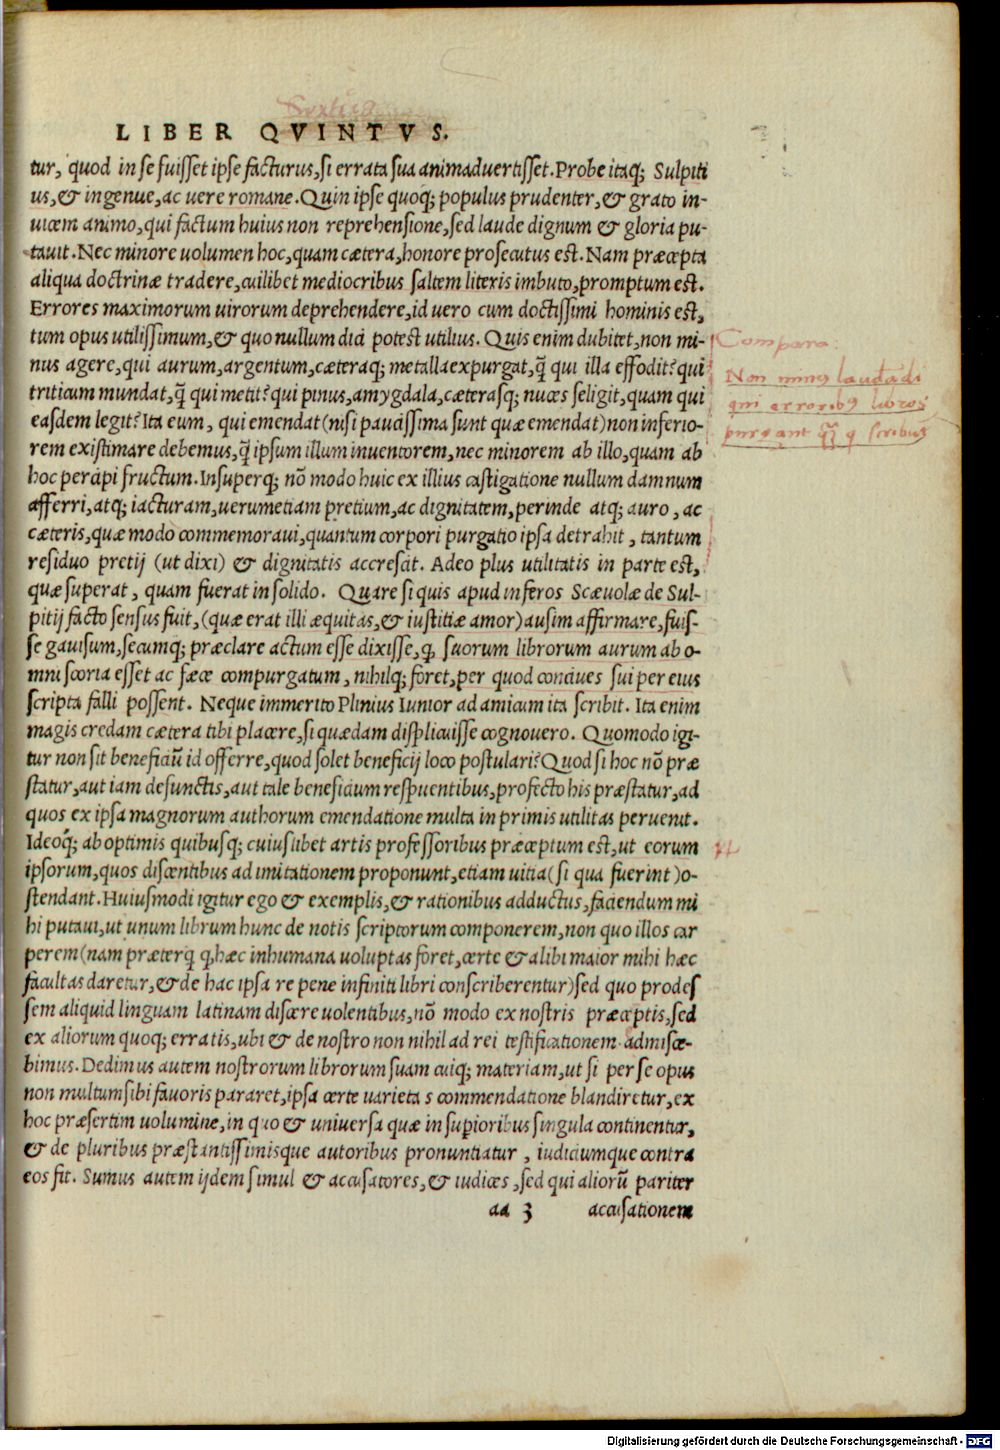 Sextus
LIBER QVINTVS.
tur, quod in se fuisset ipse facturus, si errata sua animaduertisset. Probe itaq; Sulpiti
us, & ingenue, ac uere romane. Quin ipse quoq; populus prudenter, & grato in-
uicem animo, qui factum huius non reprehensione, sed laude dignum & gloria pu-
tauit. Nec minore uolumen hoc, quam cætera, honore prosecutus est. Nam præcepta
aliqua doctrinæ tradere, cuilibet mediocribus saltem literis imbuto, promptum est.
Errores maximorum uirorum deprehendere, id uero cum doctissimi hominis est,
tum opus utilissimum, & quo nullum dici potest utilius. Quis enim dubitet, non mi-
nus agere, qui aurum, argentum, cæteraq; metalla expurgat, q̃ qui illa effodit? qui
triticum mundat, q̃ qui metit? qui pinus, amygdala, cæterasq; nuces seligit, quam qui
easdem legit? Ita eum, qui emendat (nisi paucissima sunt quæ emendat) non inferio-
rem existimare debemus, q̃ ipsum illum inuentorem, nec minorem ab illo, quam ab
hoc percipi fructum. Insuperq; nõ modo huic ex illius castigatione nullum damnum
afferri, atq; iacturam, uerumetiam pretium, ac dignitatem, perinde atq; auro, ac
cæteris, quæ modo commemoraui, quantum corpori purgatio ipsa detrahit, tantum
residuo pretij (ut dixi) & dignitatis accrescit. Adeo plus utilitatis in parte est,
quæ superat, quam fuerat in solido. Quare si quis apud inferos Scæuolæ de Sul-
pitij facto sensus fuit, (quæ erat illi æquitas, & iustitiæ amor) ausim affirmare, fuis-
se gauisum, secumq; præclare actum esse dixisse, ꝙ suorum librorum aurum ab o-
mni scoria esset ac fæce compurgatum, nihilq; foret, per quod conciues sui per eius
scripta falli possent. Neque immerito Plinius Iunior ad amicum ita scribit. Ita enim
magis credam cætera tibi placere, si quædam displicuisse cognouero. Quomodo igi-
tur non sit beneficiũ id offerre, quod solet beneficij loco postulari? Quod si hoc nõ præ
statur, aut iam defunctis, aut tale beneficium respuentibus, profecto his præstatur, ad
quos ex ipsa magnorum authorum emendatione multa in primis utilitas peruenit.
Ideoq̃; ab optimis quibusq; cuiuslibet artis professoribus præceptum est, ut eorum
ipsorum, quos discentibus ad imitationem proponunt, etiam uitia (si qua fuerint) o-
stendant. Huiusmodi igitur ego & exemplis, & rationibus adductus, faciendum mi
hi putaui, ut unum librum hunc de notis scriptorum componerem, non quo illos car
perem (nam præterq̃ ꝙ hæc inhumana uoluptas foret, certe & alibi maior mihi hæc
facultas daretur, & de hac ipsa re pene infiniti libri conscriberentur) sed quo prodes
sem aliquid linguam latinam discere uolentibus, nõ modo ex nostris præceptis, sed
ex aliorum quoq; erratis, ubi & de nostro non nihil ad rei testificationem admisce-
bimus. Dedimus autem nostrorum librorum suam cuiq; materiam, ut si per se opus
non multum sibi fauoris pararet, ipsa certe uarietas commendatione blandiretur, ex
hoc præsertim uolumine, in quo & uniuersa quæ in superioribus singula continentur,
& de pluribus præstantissimisque autoribus pronuntiatur, iudiciumque contra
eos fit. Sumus autem ijdem simul & accusatores, & iudices, sed qui aliorũ pariter
aa 3 accusationem
Compara:
Non minus laudãdi
qui erroribus libros
purgant q̃ q scribũt
Digitalisierung gefördert durch die Deutsche Forschungsgemeinschaft - DFG